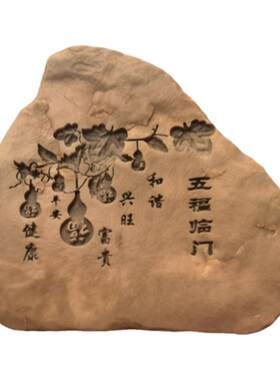 五福临门
和谐
兴旺
富贵
平安
健康